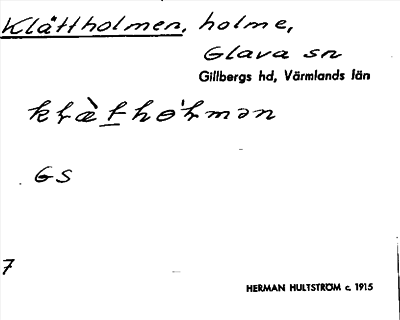 Klätthollmen, holme,
Glava sn
Gillbergs hd, Värmlands län
kł&#xE6;̀t̲hɵ̍łmən
GS
7
HERMAN HULTSTRÖM c. 1915